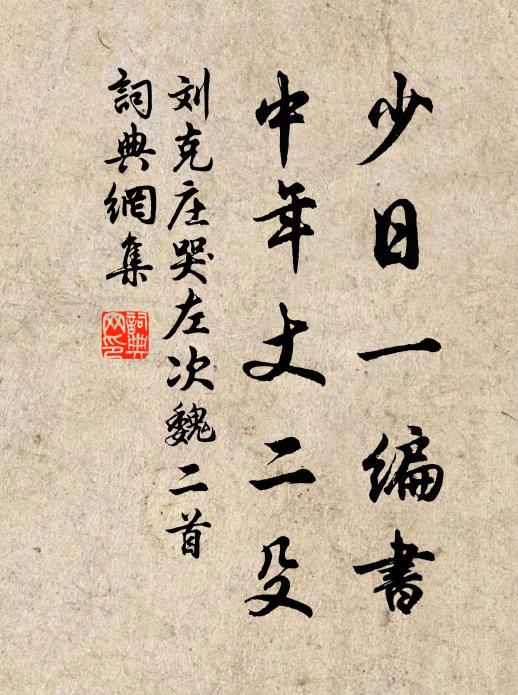 少日一编書
中年丈二殳
刘克庄哭左次魏二首
詞典網集
詞典
网印